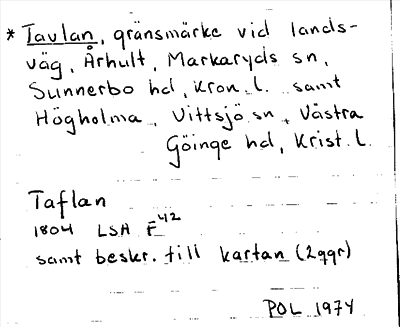 * Tavlan, gränsmärke vid lands-
väg, Århult, Markaryds sn,
Sunnerbo hd, Kron. l. samt
Högholma, Vittsjö sn, Västra
Göinge hd, Krist. l.
Taflan
1804 LSA F42
samt beskr. till kartan (2ggr)
POL 1974